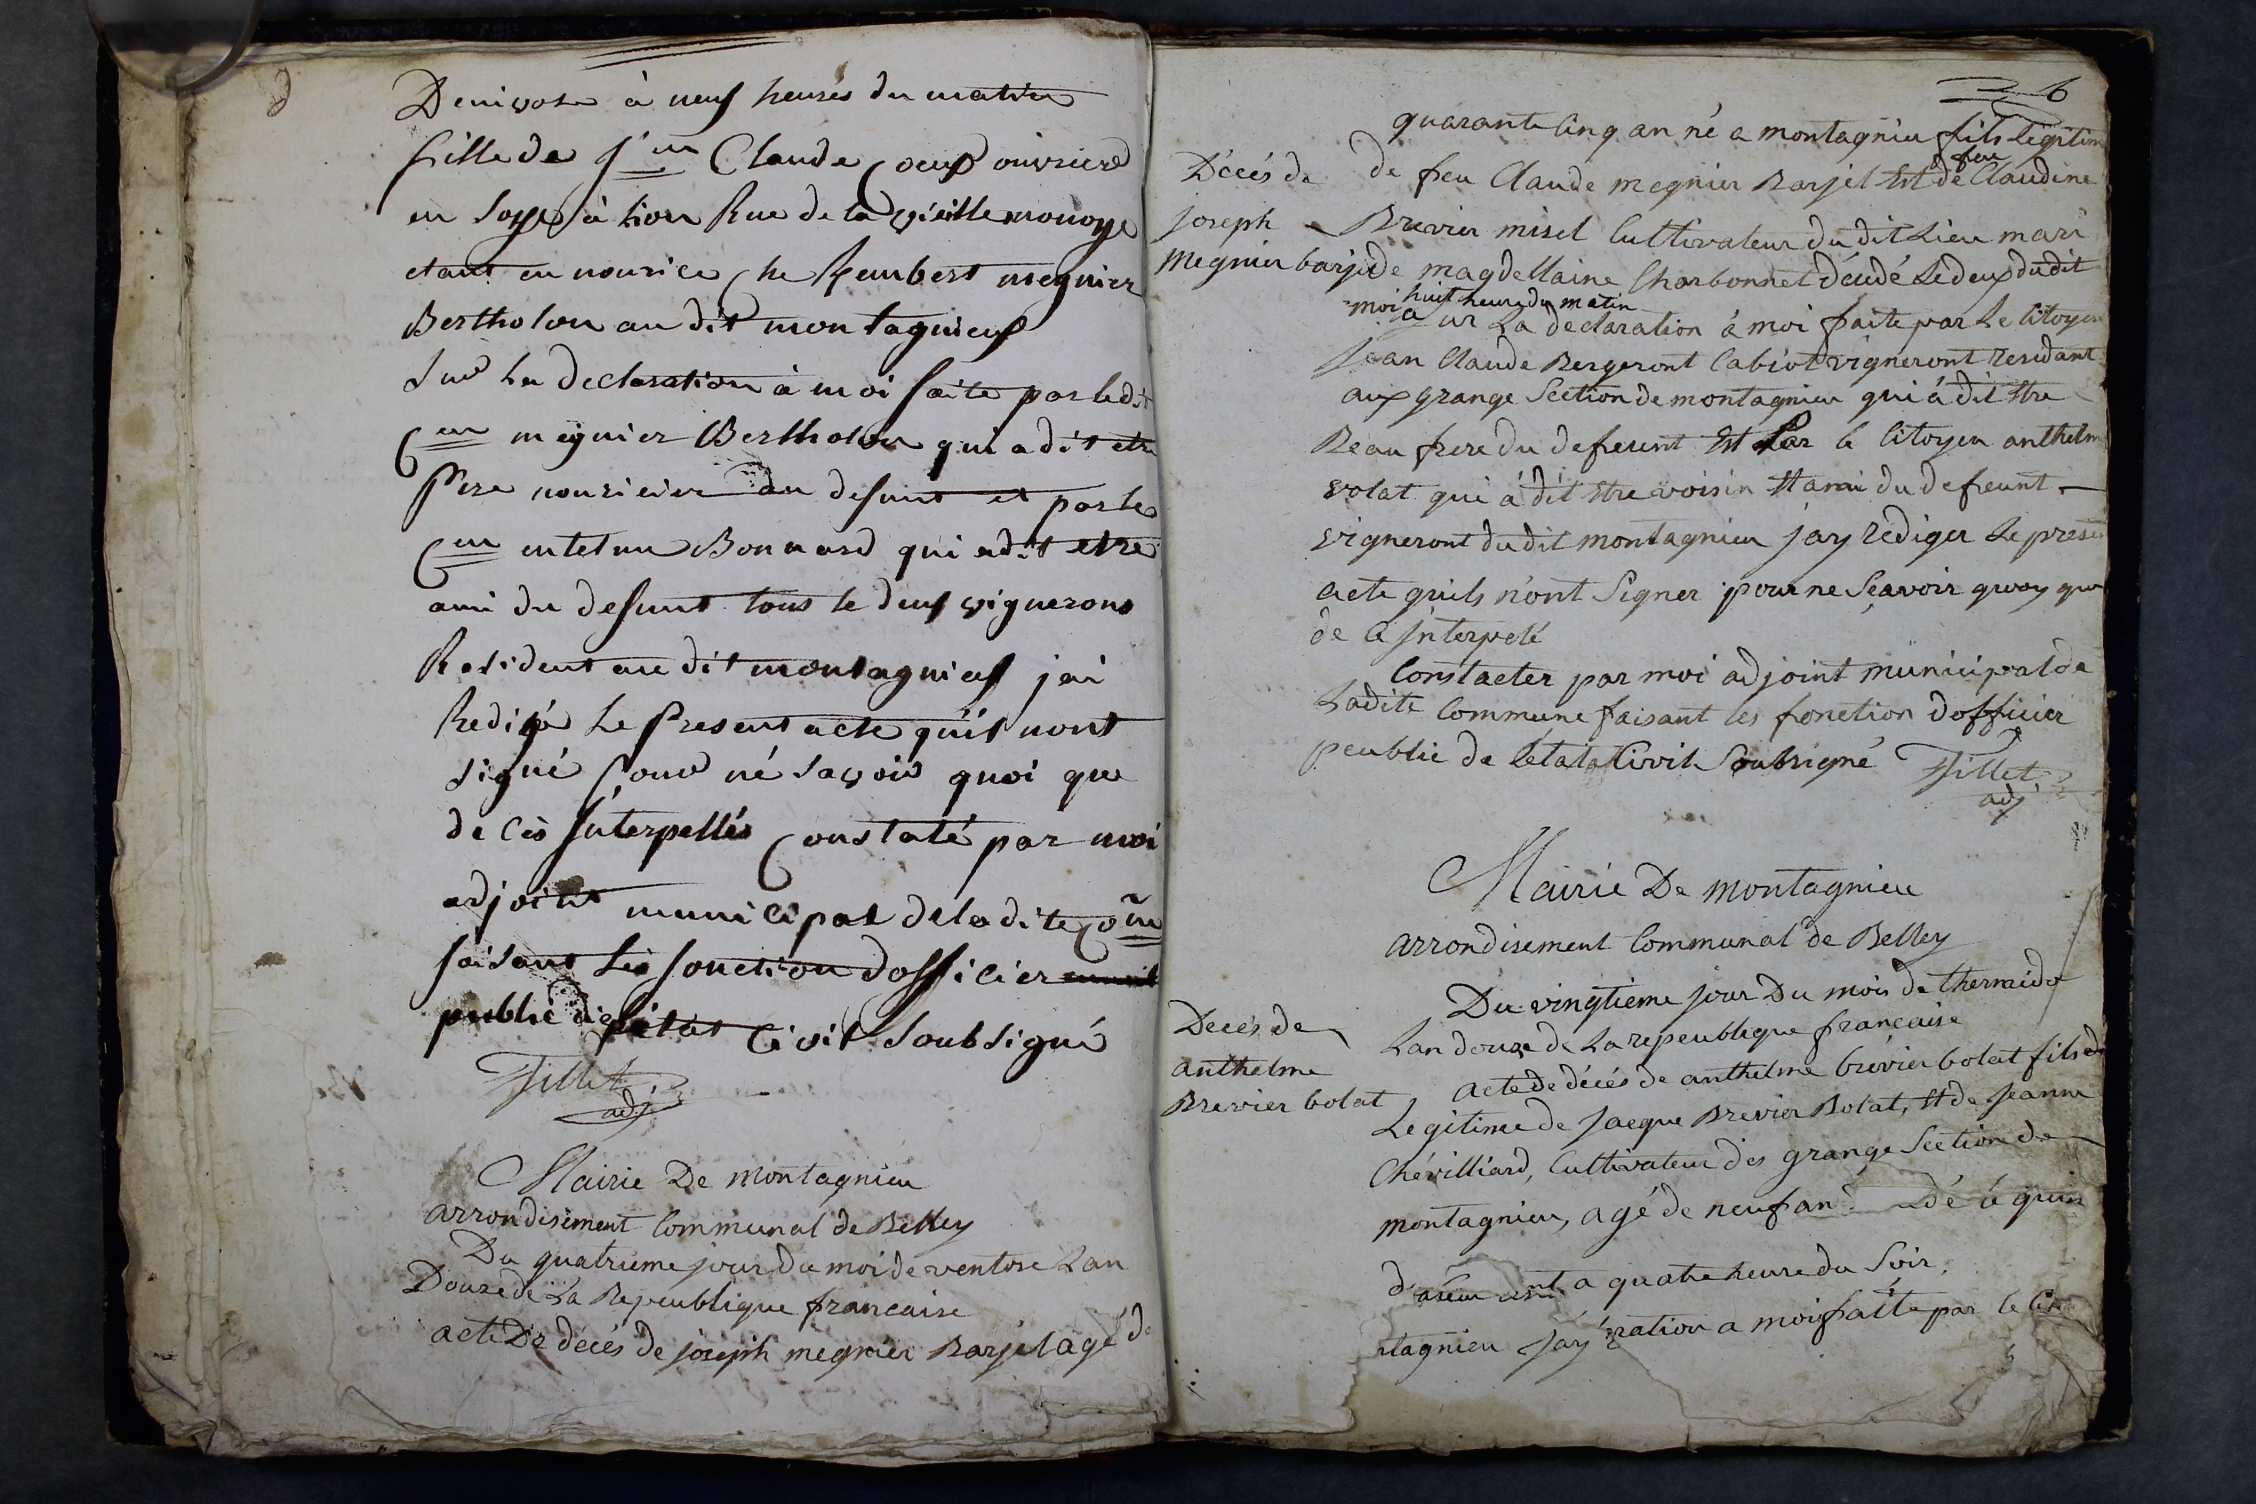 De nivose à neuf heures du matin
fille de Claude Coeux ouvrier
en soye à lion Rue de la vieille monoye
etant en nourice che humbert megnier
Bertholon au dit montagnieux
Sur la declaration à moi faite par ledit
Cen megnier Bertholon qui a dit etre
pere nouricier du defunt et par le
Cen entelme Bonnard qui a dit etre
ami du defunt tous le deux vignerons
Resident au dit montagnieux jai
Redigé le present acte quil nont
signé pour né savoir quoi que
de ces Interpellés Constaté par moi
adjoint municipal de la dite Come
faisant les fonction dofficier
public de letat Civil soubsigné
Tillet
adj
Mairie De montagnieu
arrondisement Communal de Belley
Du quatrieme jour du moi de ventose Lan
Douze de La Republique francaise
acte De décés de joseph megnier Barjel agé de
6
quarante cinq an né a montagnieu fils legitim
Décés de
joseph
Megnier barjel
de feu Claude megnier Barjel Et de feu Claudine
Brevier misel Cultivateur du dit Lieu mari
de magdellaine Charbonnet décédé le deux dudit
moi a huit heure du matin
sur La declaration à moi faite par Le Citoyen
jean Claude Bergeront Cabiot vigneront residant
aux grange Section de montagnieu qui à dit Etre
Beau frere du defeunt Et Par le Citoyen anthelm
volat qui à dit Etre voisin Et ami du defeunt
vigneront du dit montagnieu jay rediger Le presen
acte quils nont Signer pour ne Sçavoir quoy que
de Ce Interpelé
Constacter par moi adjoint municipal de
Ladite Commune faisant les fonction dofficier
peublic de Létata Civil Soubsigné Tillet
adj
Mairie De montagnieu
arrondisement Communal de Belley
Du vingtieme jour Du mois de thermidor
Lan douze de La repeublique francaise
Decés de
anthelme
Brevier bolat
acte de décés de anthelme brévier bolat fils
Legitime de jaeque Brevier Bolat, Et de jeanne
Chévilliard, Cultivateur des grange Section de
montagnieu, agé de neuf an dé à quin
a quatre heure du Soir,
ntagnieu jay ration a moi faitte par le Cit